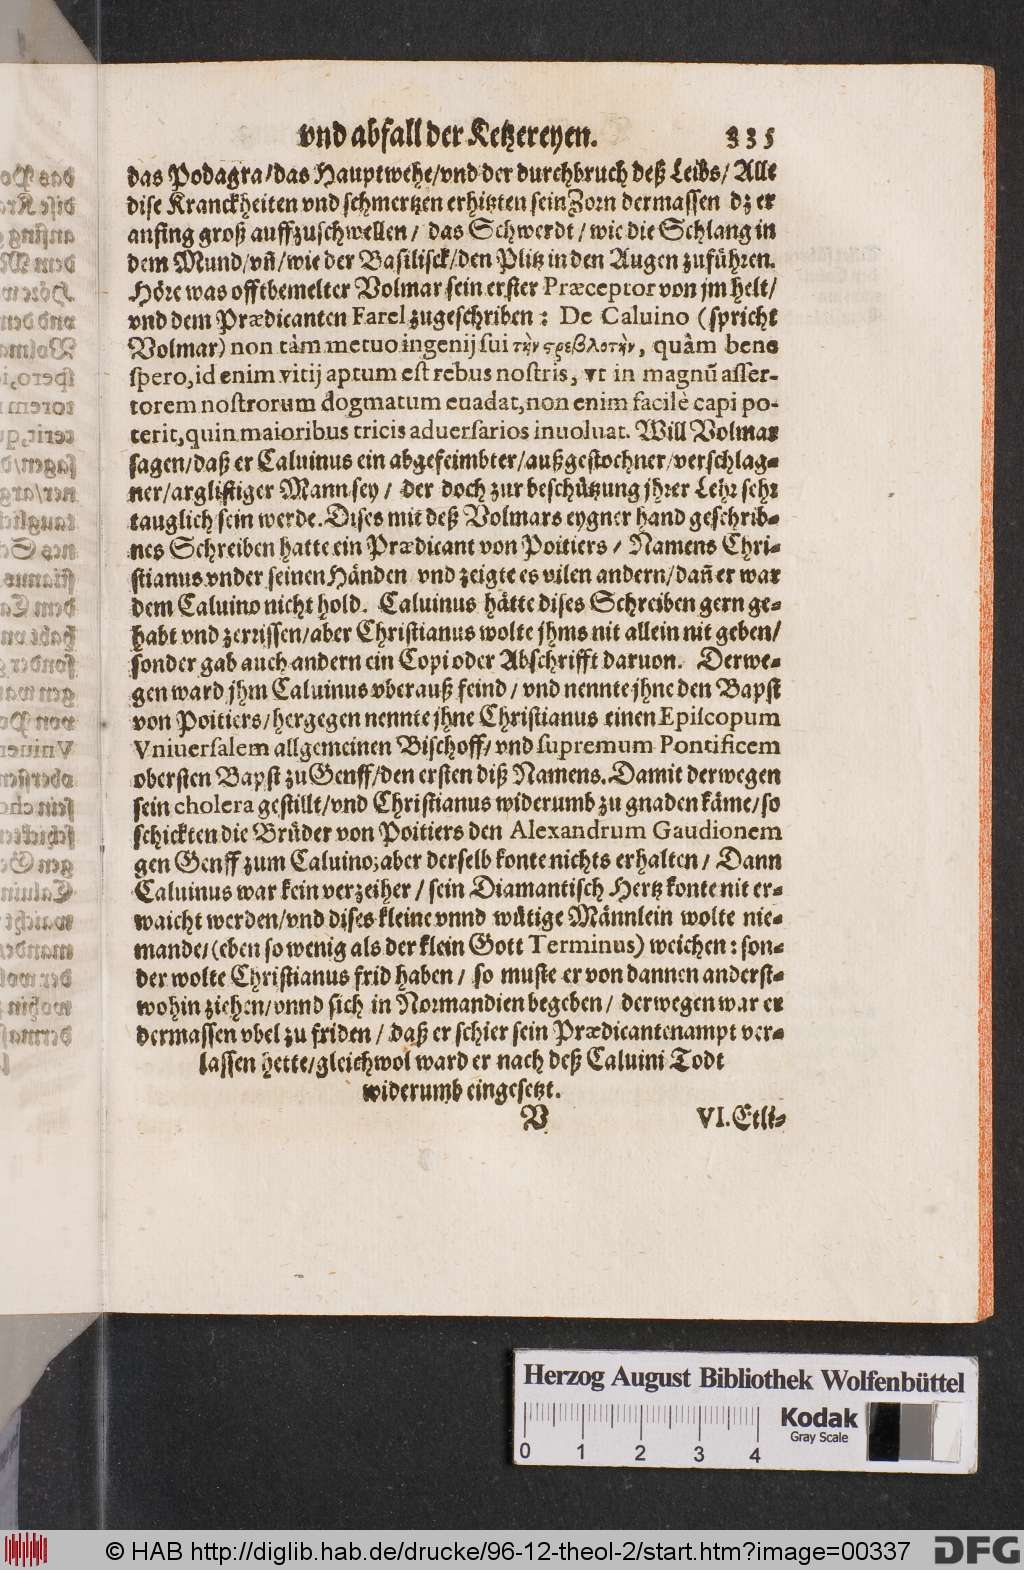 vnd abfall der Ketzereyen. 335
das Podagra/das Hauptwehe/vnd der durchbruch deß Leibs/ Alle
dise Kranckheiten vnd schmertzen erhitzten sein Zorn dermassen dz er
anfing groß auffzuschwellen/ das Schwerdt/ wie die Schlang in
dem Mund/vñ/wie der Basilisck/den Plitz in den Augen zuführen.
Höre was offtbemelter Volmar sein erster Præceptor von jm helt/
vnd dem Prædicanten Farel zugeschriben: De Caluino (spricht
Volmar) non tàm metuo ingenij sui τὴν στρεβλοτὴν, quàm bene
spero, id enim vitij aptum est rebus nostris, vt in magnũ asser-
torem nostrorum dogmatum euadat, non enim facilè capi po-
terit, quin maioribus tricis aduersarios inuoluat. Will Volmar
sagen/daß er Caluinus ein abgefeimbter/außgestochner/verschlag-
ner/arglistiger Mann sey/ der doch zur beschützung jhrer Lehr sehr
tauglich sein werde. Dises mit deß Volmars eygner hand geschrib-
nes Schreiben hatte ein Prædicant von Poitiers/ Namens Chri-
stianus vnder seinen Händen vnd zeigte es vilen andern/dañ er war
dem Caluino nicht hold. Caluinus hätte dises Schreiben gern ge-
habt vnd zerrissen/aber Christianus wolte jhms nit allein nit geben/
sonder gab auch andern ein Copi oder Abschrifft daruon. Derwe-
gen ward jhm Caluinus vberauß feind/ vnd nennte jhne den Bapst
von Poitiers/hergegen nennte jhne Christianus einen Episcopum
Vniuersalem allgemeinen Bischoff/ vnd supremum Pontificem
obersten Bapst zu Genff/den ersten diß Namens. Damit derwegen
sein cholera gestillt/vnd Christianus widerumb zu gnaden käme/so
schickten die Brüder von Poitiers den Alexandrum Gaudionem
gen Genff zum Caluino; aber derselb konte nichts erhalten/ Dann
Caluinus war kein verzeiher/ sein Diamantisch Hertz konte nit er-
waicht werden/vnd dises kleine vnnd wütige Männlein wolte nie-
mande/(eben so wenig als der klein Gott Terminus) weichen: son-
der wolte Christianus frid haben/ so muste er von dannen anderst-
wohin ziehen/vnnd sich in Normandien begeben/ derwegen war er
dermassen vbel zu friden/ daß er schier sein Prædicantenampt ver-
lassen hette/gleichwol ward er nach deß Caluini Todt
widerumb eingesetzt.
V VI. Etli-
Herzog August Bibliothek Wolfenbüttel
0 1 2 3 4
Kodak
Gray Scale
© HAB http://diglib.hab.de/drucke/96-12-theol-2/start.htm?image=00337
DFG